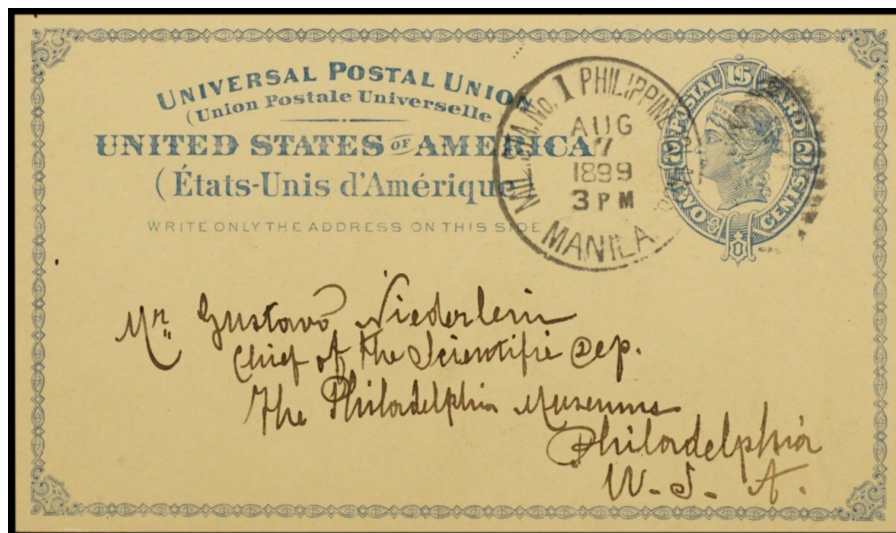 UNIVERSAL POSTAL UNION
(Union Postale Universelle
UNITED STATES OF AMERICA
(États-Unis d'Amérique
WRITE ONLY THE ADDRESS ON THIS SIDE
MIL. STA. No. 1 PHILIPPINE
AUG
7
1899
3 PM
MANILA
U.S. POSTAL CARD
TWO 2 CENTS 2
Mr. Gustavo Niederlein
Chief of the Scientific Dep.
The Philadelphia Museums
Philadelphia
U. S. A.